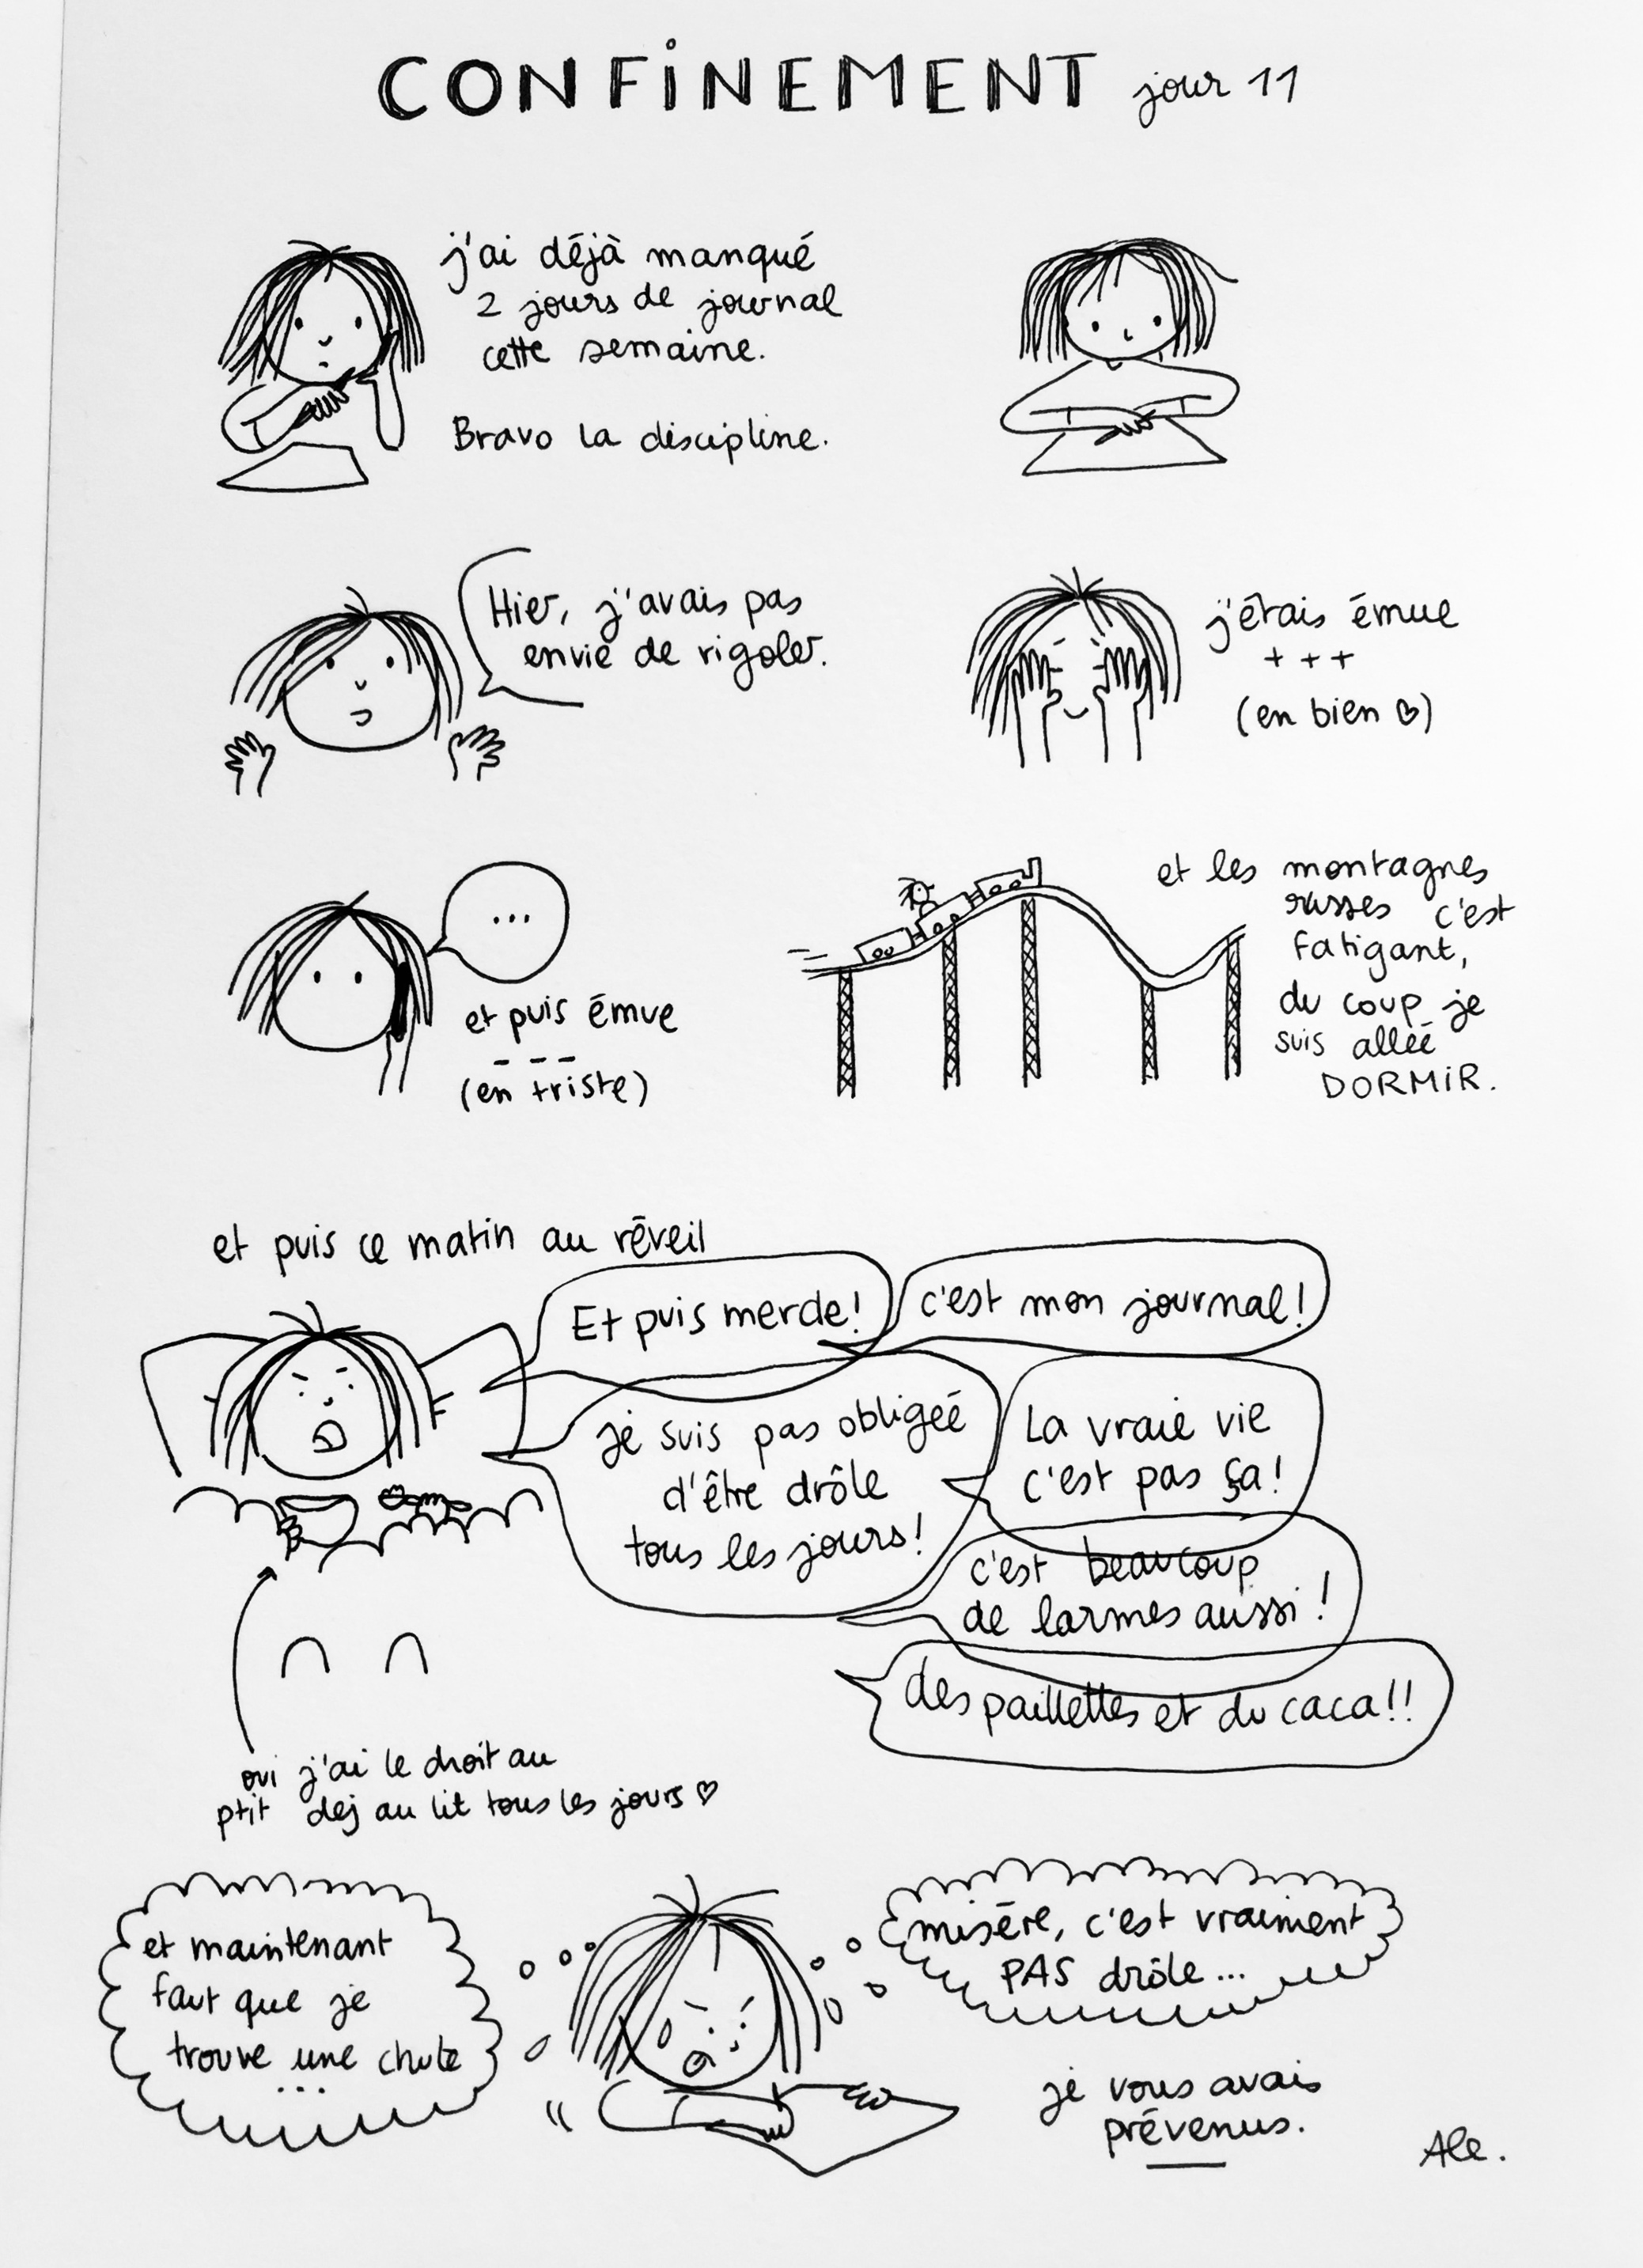 CONFINEMENT jour 11
j'ai déjà manqué
2 jours de journal
cette semaine.
Bravo la discipline.
Hier, j'avais pas
envie de rigoler.
j'étais émue
+ + +
(en bien ♡)
...
et puis émue
- - -
(en triste)
et les montagnes
russes c'est
fatigant,
du coup je
suis allée
DORMIR.
et puis ce matin au réveil
Et puis merde!
c'est mon journal!
je suis pas obligée
d'être drôle
tous les jours!
La vraie vie
c'est pas ça!
c'est beaucoup
de larmes aussi!
des paillettes et du caca!!
oui j'ai le droit au
ptit dej au lit tous les jours ♡
et maintenant
faut que je
trouve une chute
...
misère, c'est vraiment
PAS drôle...
je vous avais
prévenus.
Ale.